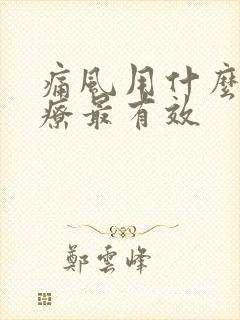 痛風用什麼
療最有效
鄭雲峰